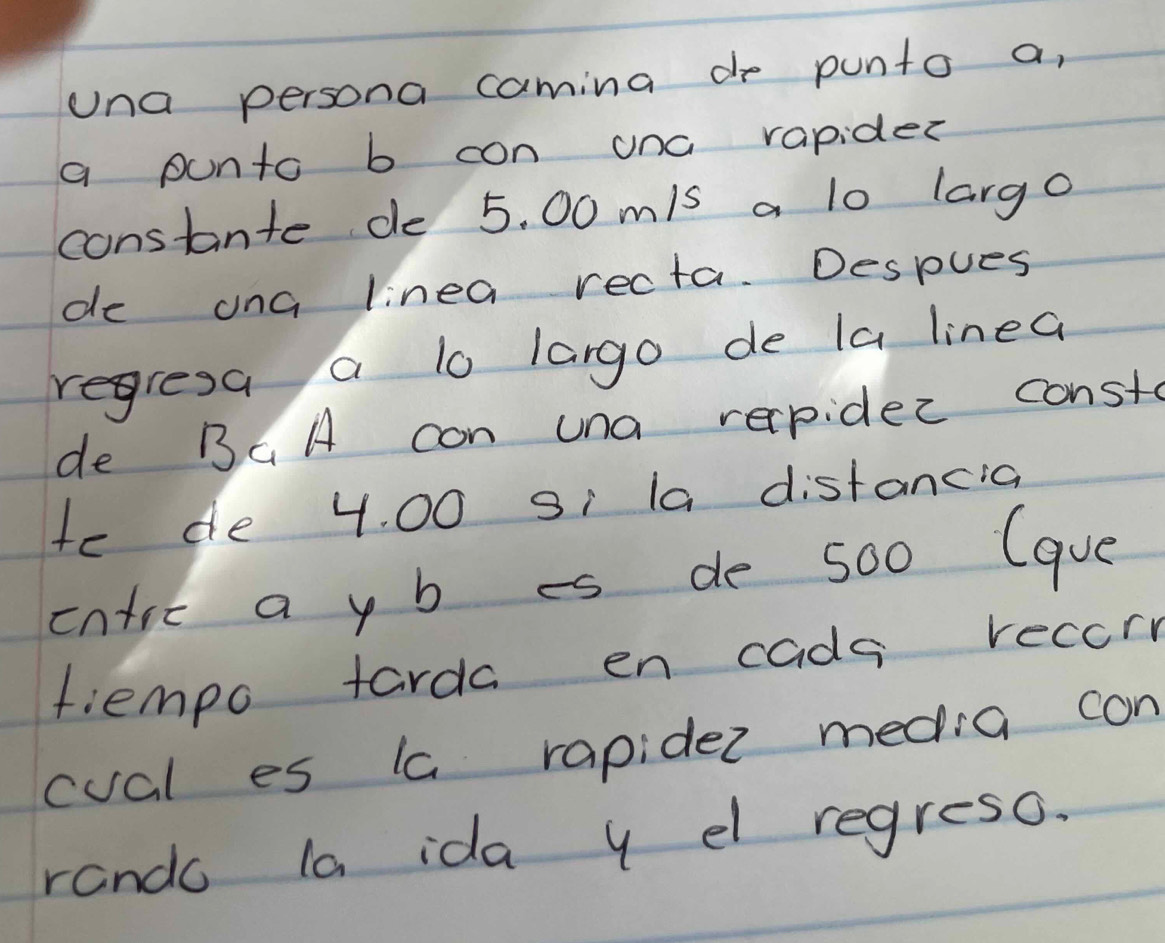 una persona camina de punto a,
a punto b con una rapidez
constante de 5.00 m/s a lo largo
de una linea recta. Despues
regresa a lo largo de la linea
de B a A con una rapidez consta
te de 4.00 si la distancia
entre a y b es de 500 (que
tiempo tarda en cada recorr
cual es la rapidez media con
rando la ida y el regreso.